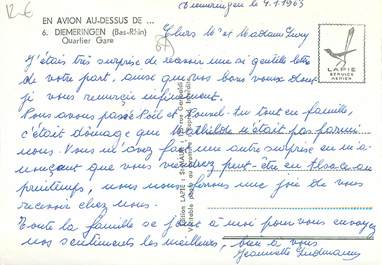 12-6
Diemeringen le 4.1.1963
EN AVION AU-DESSUS DE ...
6. DIEMERINGEN (Bas-Rhin)
Quartier Gare
67
Chers Mr et Madame
LAPIE
SERVICE
AERIEN
J'étais très surprise de recevoir une si gentille lettre
de votre part, ainsi que vos bons vœux dont
je vous remercie infiniment.
Nous avons passé Noël et Nouvel-An tout en famille,
c'était dommage que Mathilde n'était pas parmi
nous. Vous m'avez fait une autre surprise en m'an-
nonçant que vous viendrez peut-être en Alsace au
printemps, nous nous ferons une joie de vous
recevoir chez nous.
Toute la famille se joint à moi pour vous envoyer
nos sentiments les meilleurs, bien à vous
Jeannette